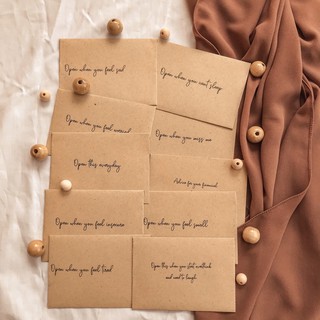 Open when you feel sad
Open when you can't sleep
Open when you feel
Open when you miss me
Open this everyday
Advice for your
Open when you feel insecure
Open when you feel small
Open when you feel tired
Open this when you feel
and need to laugh